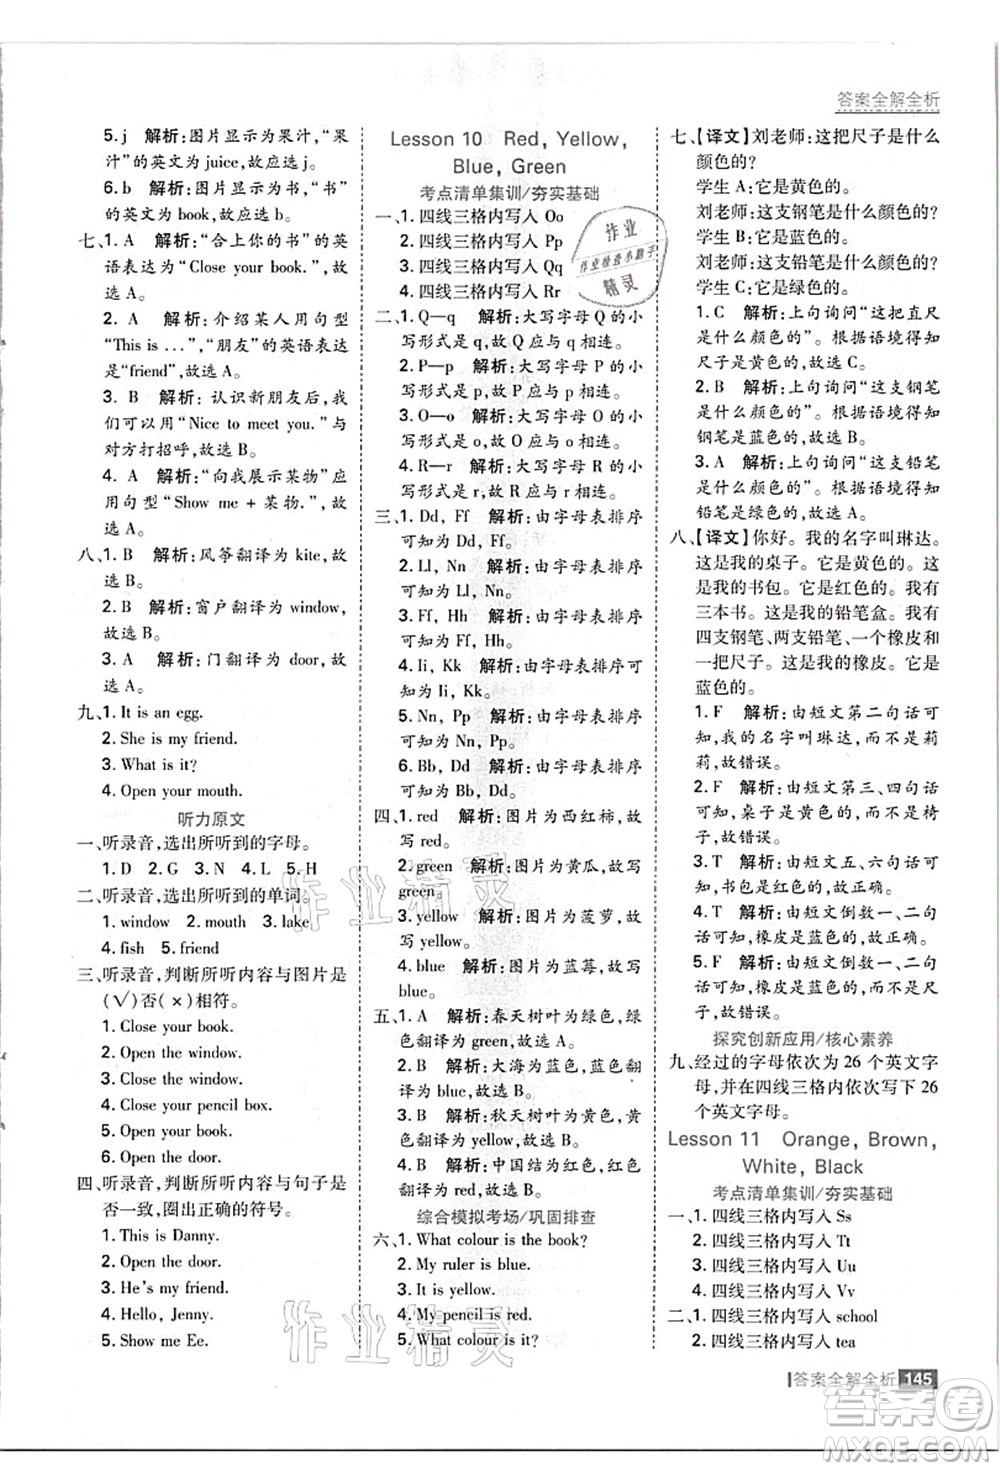 答案全解全析
5. j 解析:图片显示为果汁,“果
汁”的英文为 juice,故应选 j。
6. b 解析:图片显示为书,“书”
的英文为 book,故应选 b。
七、1. A 解析:“合上你的书”的英
语表达为“Close your book.”,故
选 A。
2. A 解析:介绍某人用句型
“This is …”,“朋友”的英语表达
是“friend”,故选 A。
3. B 解析:认识新朋友后,我
们可以用“Nice to meet you.”与
对方打招呼,故选 B。
4. A 解析:“向我展示某物”应
用句型“Show me + 某物.”,故
选 A。
八、1. B 解析:风筝翻译为 kite,故
选 B。
2. B 解析:窗户翻译为 window,
故选 B。
3. A 解析:门翻译为 door,故
选 A。
九、1. It is an egg.
2. She is my friend.
3. What is it?
4. Open your mouth.
听力原文
一、听录音,选出所听到的字母。
1. D 2. G 3. N 4. L 5. H
二、听录音,选出所听到的单词。
1. window 2. mouth 3. lake
4. fish 5. friend
三、听录音,判断所听内容与图片是
(√)否(×)相符。
1. Close your book.
2. Open the window.
3. Close the window.
4. Close your pencil box.
5. Open your book.
6. Open the door.
四、听录音,判断所听内容与句子是
否一致,圈出正确的符号。
1. This is Danny.
2. Open the door.
3. He's my friend.
4. Hello, Jenny.
5. Show me Ee.
Lesson 10 Red, Yellow,
Blue, Green
考点清单集训/夯实基础
一、1. 四线三格内写入 Oo
2. 四线三格内写入 Pp
3. 四线三格内写入 Qq
4. 四线三格内写入 Rr
二、1. Q—q 解析:大写字母 Q 的小
写形式是 q,故 Q 应与 q 相连。
2. P—p 解析:大写字母 P 的小
写形式是 p,故 P 应与 p 相连。
3. O—o 解析:大写字母 O 的小
写形式是 o,故 O 应与 o 相连。
4. R—r 解析:大写字母 R 的小
写形式是 r,故 R 应与 r 相连。
三、1. Dd, Ff 解析:由字母表排序
可知为 Dd, Ff。
2. Ll, Nn 解析:由字母表排序
可知为 Ll, Nn。
3. Ff, Hh 解析:由字母表排序
可知为 Ff, Hh。
4. Ii, Kk 解析:由字母表排序可
知为 Ii, Kk。
5. Nn, Pp 解析:由字母表排序
可知为 Nn, Pp。
6. Bb, Dd 解析:由字母表排序
可知为 Bb, Dd。
四、1. red 解析:图片为西红柿,故
写 red。
2. green 解析:图片为黄瓜,故写
green。
3. yellow 解析:图片为菠萝,故
写 yellow。
4. blue 解析:图片为蓝莓,故写
blue。
五、1. A 解析:春天树叶为绿色,绿
色翻译为 green,故选 A。
2. B 解析:大海为蓝色,蓝色翻
译为 blue,故选 B。
3. B 解析:秋天树叶为黄色,黄
色翻译为 yellow,故选 B。
4. B 解析:中国结为红色,红色
翻译为 red,故选 B。
综合模拟考场/巩固排查
六、1. What colour is the book?
2. My ruler is blue.
3. It is yellow.
4. My pencil is red.
5. What colour is it?
七、【译文】刘老师:这把尺子是什么
颜色的?
学生 A:它是黄色的。
刘老师:这支钢笔是什么颜色的?
学生 B:它是蓝色的。
刘老师:这支铅笔是什么颜色的?
学生 C:它是绿色的。
1. C 解析:上句询问“这把直尺
是什么颜色的”。根据语境得知
尺子是黄色的,故选 C。
2. B 解析:上句询问“这支钢笔
是什么颜色的”。根据语境得知
钢笔是蓝色的,故选 B。
3. A 解析:上句询问“这支铅笔
是什么颜色的”。根据语境得知
铅笔是绿色的,故选 A。
八、【译文】你好。我的名字叫琳达。
这是我的桌子。它是黄色的。这
是我的书包。它是红色的。我有
三本书。这是我的铅笔盒。我有
四支钢笔、两支铅笔、一个橡皮和
一把尺子。这是我的橡皮。它是
蓝色的。
1. F 解析:由短文第二句话可
知,我的名字叫琳达,而不是莉
莉,故错误。
2. F 解析:由短文第三、四句话
可知,桌子是黄色的,而不是椅
子,故错误。
3. T 解析:由短文五、六句话可
知,书包是红色的,故正确。
4. T 解析:由短文倒数一、二句
话可知,橡皮是蓝色的,故正确。
5. F 解析:由短文倒数一、二句
话可知,橡皮是蓝色的,而不是尺
子,故错误。
探究创新应用/核心素养
九、经过的字母依次为 26 个英文字
母,并在四线三格内依次写下 26
个英文字母。
Lesson 11 Orange, Brown,
White, Black
考点清单集训/夯实基础
一、1. 四线三格内写入 Ss
2. 四线三格内写入 Tt
3. 四线三格内写入 Uu
4. 四线三格内写入 Vv
二、1. 四线三格内写入 school
2. 四线三格内写入 tea
答案全解全析 145
作业
作业检查小助手
精灵
作业精灵
作业精灵
答案圈
MXQE.COM